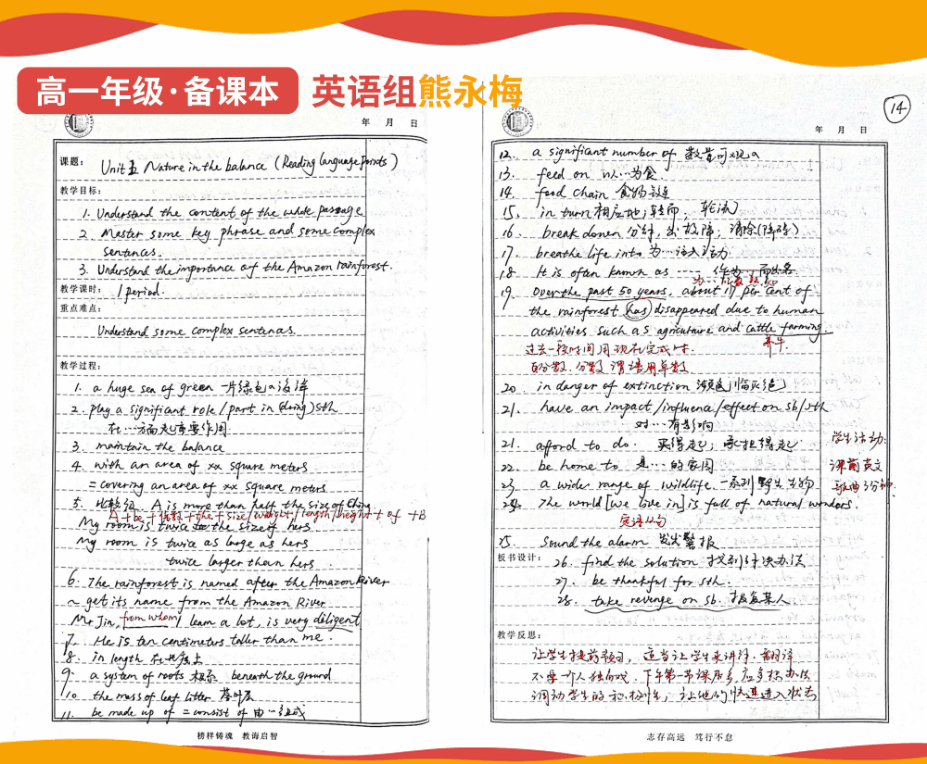 高一年级·备课本 英语组熊永梅
年 月 日
课题: Unit 五 Nature in the balance (Reading language points)
教学目标:
1. Understand the content of the whole passage
2. Master some key phrase and some complex
sentences.
3. Understand the importance of the Amazon rainforest.
教学课时: 1 period.
重点难点:
Understand some complex sentences.
教学过程:
1. a huge sea of green 一片绿色的海洋
2. play a significant role / part in (doing) sth
在…方面起重要作用
3. maintain the balance
4. with an area of xx square meters
= covering an area of xx square meters
5. 比较级 A is more than half the size of
A + be + 倍数 + the + size/weight/length/height + of + B
My room is twice the size of hers
My room is twice as large as hers
twice larger than hers
6. The rainforest is named after the Amazon River
~ get its name from the Amazon River
Mr Jin, from whom I learn a lot, is very diligent
7. He is ten centimeters taller than me.
8. in length 在长度上
9. a system of roots 根系 beneath the ground
10. the mass of leaf litter 落叶层
11. be made up of = consist of 由…组成
榜样铸魂 教诲启智
14
年 月 日
12. a significant number of 数量可观的
13. feed on 以…为食
14. food chain 食物链
15. in turn 相应地; 转而, 轮流
16. break down 分解, 出故障, 消除(障碍)
17. breathe life into 为…注入活力
18 It is often known as …… 作为…而出名
19. Over the past 50 years, about 17 per cent of
the rainforest has disappeared due to human
activities such as agriculture and cattle farming.
过去一段时间用现在完成时. 养牛
百分数、分数 谓语用单数
20. in danger of extinction 濒危/临灭绝
21. have an impact/influence/effect on sb/sth
对…有影响
21. afford to do. 买得起; 承担得起
学生活动:
22. be home to 是…的家园
课前英文
23. a wider range of wildlife 一系列野生生物
歌曲3分钟
24. The world [we live in] is full of natural wonders.
定语从句
25. Sound the alarm 发出警报
板书设计: 26. find the solution 找到解决办法
27. be thankful for sth.
28. take revenge on sb. 报复某人
教学反思:
让学生提前预习, 适当让学生来讲译、翻译
不要一个人独角戏, 下午第一节课居多, 应多想办法
调动学生的积极性, 让他们快速进入状态
志存高远 笃行不怠